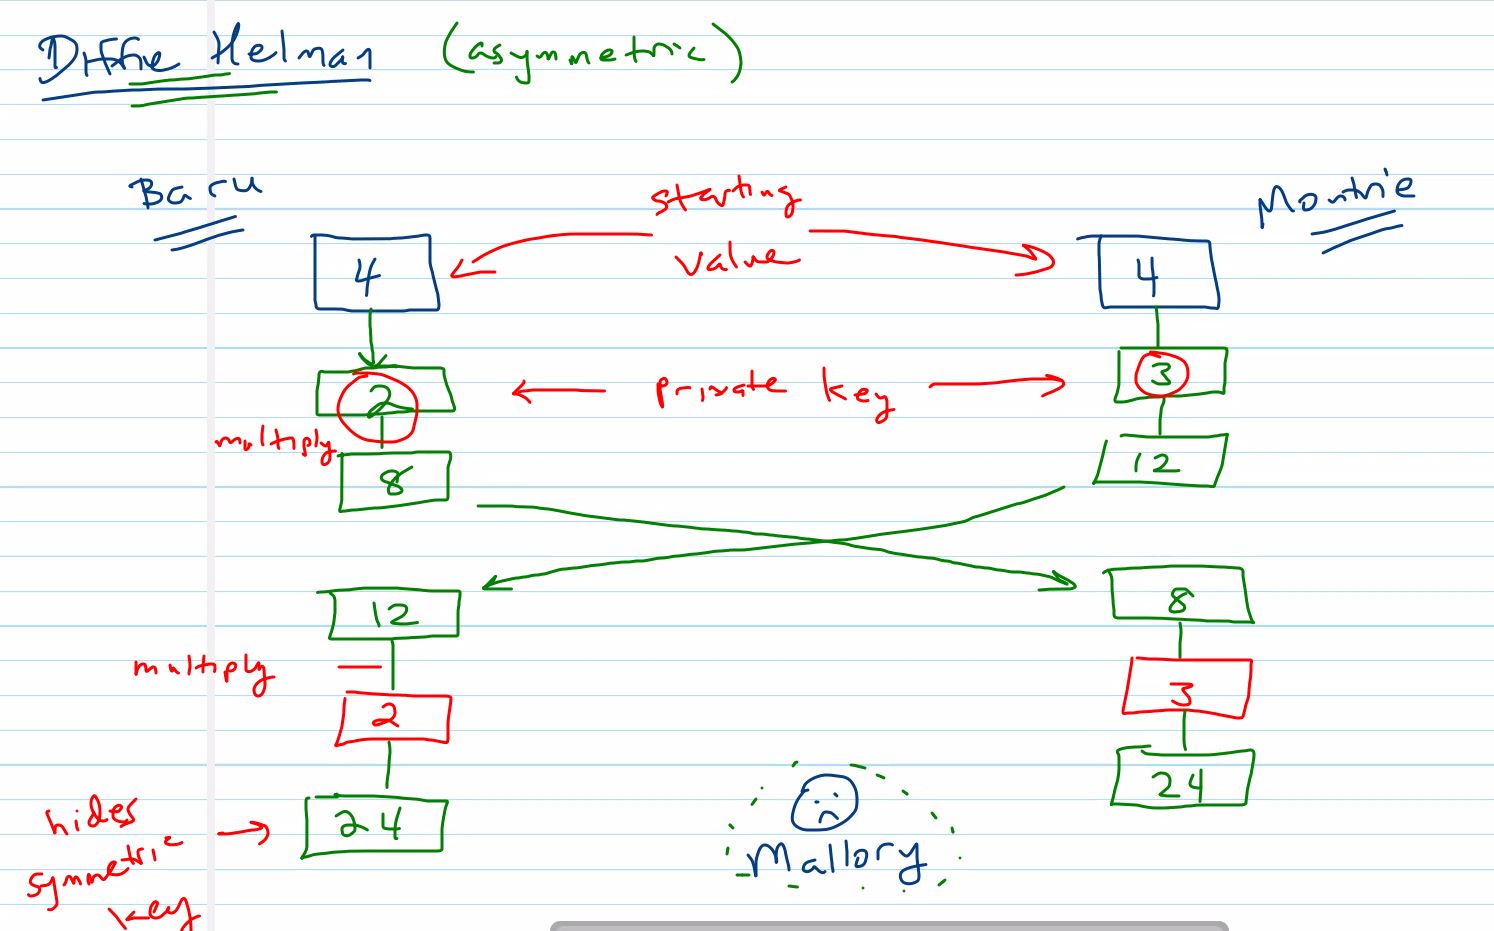 Diffie Helman (asymmetric)
Baru
starting
value
Montrie
4
4
2
private key
3
multiply
8
12
12
8
multiply
2
3
24
24
hides
symmetric
key
Mallory